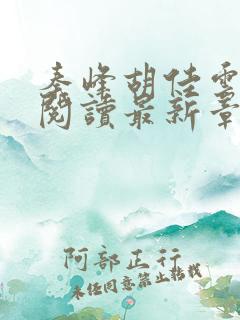 秦峰胡佳雲
閱讀最新章
阿部正行
未經同意禁止轉載